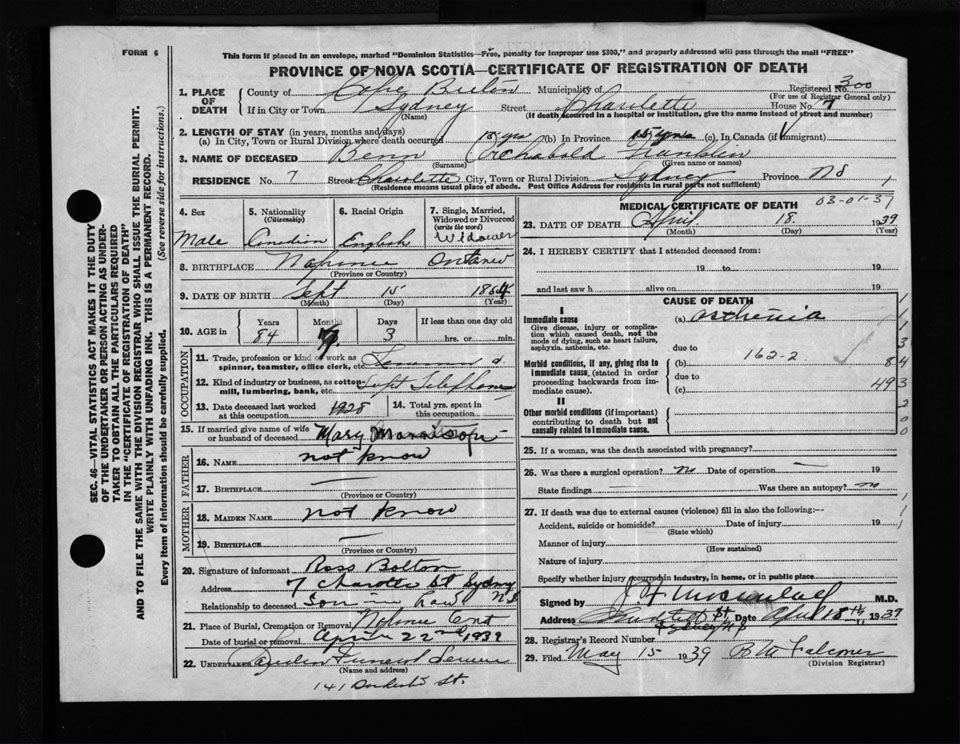 FORM 6
This form if placed in an envelope, marked "Dominion Statistics—Free, penalty for improper use $300," and properly addressed will pass through the mail "FREE"
PROVINCE OF NOVA SCOTIA—CERTIFICATE OF REGISTRATION OF DEATH
SEC. 46—VITAL STATISTICS ACT MAKES IT THE DUTY
OF THE UNDERTAKER OR PERSON ACTING AS UNDER-
TAKER TO OBTAIN ALL THE PARTICULARS REQUIRED
IN THE "CERTIFICATE OF REGISTRATION OF DEATH"
AND TO FILE THE SAME WITH THE DIVISION REGISTRAR WHO SHALL ISSUE THE BURIAL PERMIT.
WRITE PLAINLY WITH UNFADING INK. THIS IS A PERMANENT RECORD.
Every item of information should be carefully supplied. (See reverse side for instructions.)
1. PLACE OF DEATH County of Cape Breton Municipality of Registered No. 300
(For use of Registrar General only)
If in City or Town Sydney Street Charlotte House No. 7
(Name) (If death occurred in a hospital or institution, give the name instead of street and number)
2. LENGTH OF STAY (in years, months and days)
(a) In City, Town or Rural Division where death occurred 15 yrs (b) In Province 15 yrs (c) In Canada (if immigrant)
3. NAME OF DECEASED Benn Archabold Franklin
(Surname) (Given name or names)
RESIDENCE No. 7 Street Charlotte City, Town or Rural Division Sydney Province NS
(Residence means usual place of abode. Post Office Address for residents in rural parts not sufficient)
4. Sex 5. Nationality (Citizenship) 6. Racial Origin 7. Single, Married, Widowed or Divorced (write the word)
Male Canadian English Widower
8. BIRTHPLACE Napanee Ontario
(Province or Country)
9. DATE OF BIRTH Sept 15 1854
(Month) (Day) (Year)
10. AGE in Years Months Days If less than one day old
84 7 3 hrs. or min.
OCCUPATION
11. Trade, profession or kind of work as spinner, teamster, office clerk, etc.
12. Kind of industry or business, as cotton-mill, lumbering, bank, etc. Supt Telephone
13. Date deceased last worked at this occupation 1928 14. Total yrs. spent in this occupation
15. If married give name of wife or husband of deceased Mary
FATHER
16. NAME not know
17. BIRTHPLACE —
(Province or Country)
MOTHER
18. MAIDEN NAME not know
19. BIRTHPLACE —
(Province or Country)
20. Signature of informant Ross Bolton
Address 7 Charotte St Sydney NS
Relationship to deceased Son in Law
21. Place of Burial, Cremation or Removal Napanee Ont
Date of burial or removal April 22nd 1939
22. UNDERTAKER Funeral Service
(Name and address)
141 St.
MEDICAL CERTIFICATE OF DEATH 03-01-37
23. DATE OF DEATH April 18 1939
(Month) (Day) (Year)
24. I HEREBY CERTIFY that I attended deceased from:
19 to 19
and last saw h alive on 19
CAUSE OF DEATH
I
Immediate cause (a) asthenia
Give disease, injury or complication which caused death, not the mode of dying, such as heart failure, asphyxia, asthenia, etc.
due to
162-2
Morbid conditions, if any, giving rise to immediate cause, (stated in order proceeding backwards from immediate cause). (b)
due to
(c)
II
Other morbid conditions (if important) contributing to death but not causally related to immediate cause.
1
1
3
84
493
2
0
0
25. If a woman, was the death associated with pregnancy?
26. Was there a surgical operation? No Date of operation — 19
State findings Was there an autopsy? no
27. If death was due to external causes (violence) fill in also the following:—
Accident, suicide or homicide? Date of injury 19
(State which)
Manner of injury
(How sustained)
Nature of injury
Specify whether injury occurred in industry, in home, or in public place
Signed by M.D.
Address St Sydney N S Date April 18th 1939
28. Registrar's Record Number
29. Filed May 15 1939 B M Falconer
(Division Registrar)